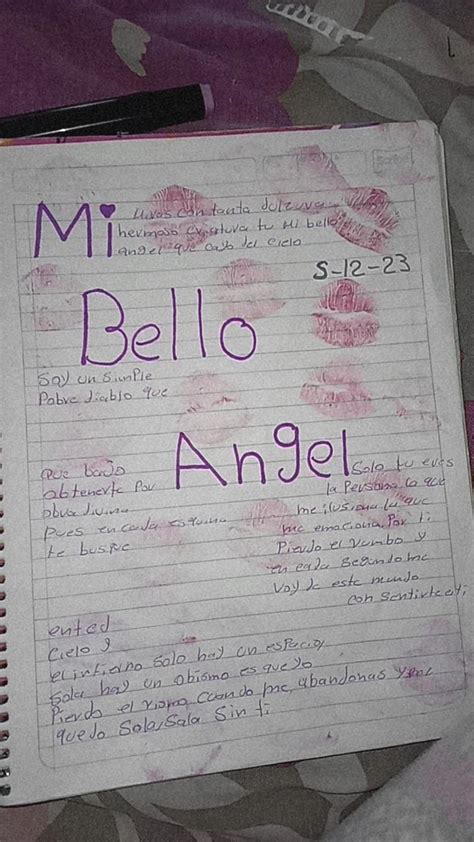 Mi
con tanta dulzura
hermosa criatura tu Mi bello
angel que cayo del cielo
S-12-23
Bello
Soy un simple
Pobre diablo que
Angel
que bajo
obtenerte Por
obra divina
Pues en cada esquina
te busque
Solo tu eres
la Persona la que
me ilusiona la que
me emociona. Por ti
Pierdo el rumbo y
en cada segundo me
voy de este mundo
con sentirte a ti
Cielo y
el infierno solo hay un espacio y
Sola hay un abismo es que yo
Pierdo el cuando me, abandonas y me
quedo Sola, Sola Sin ti